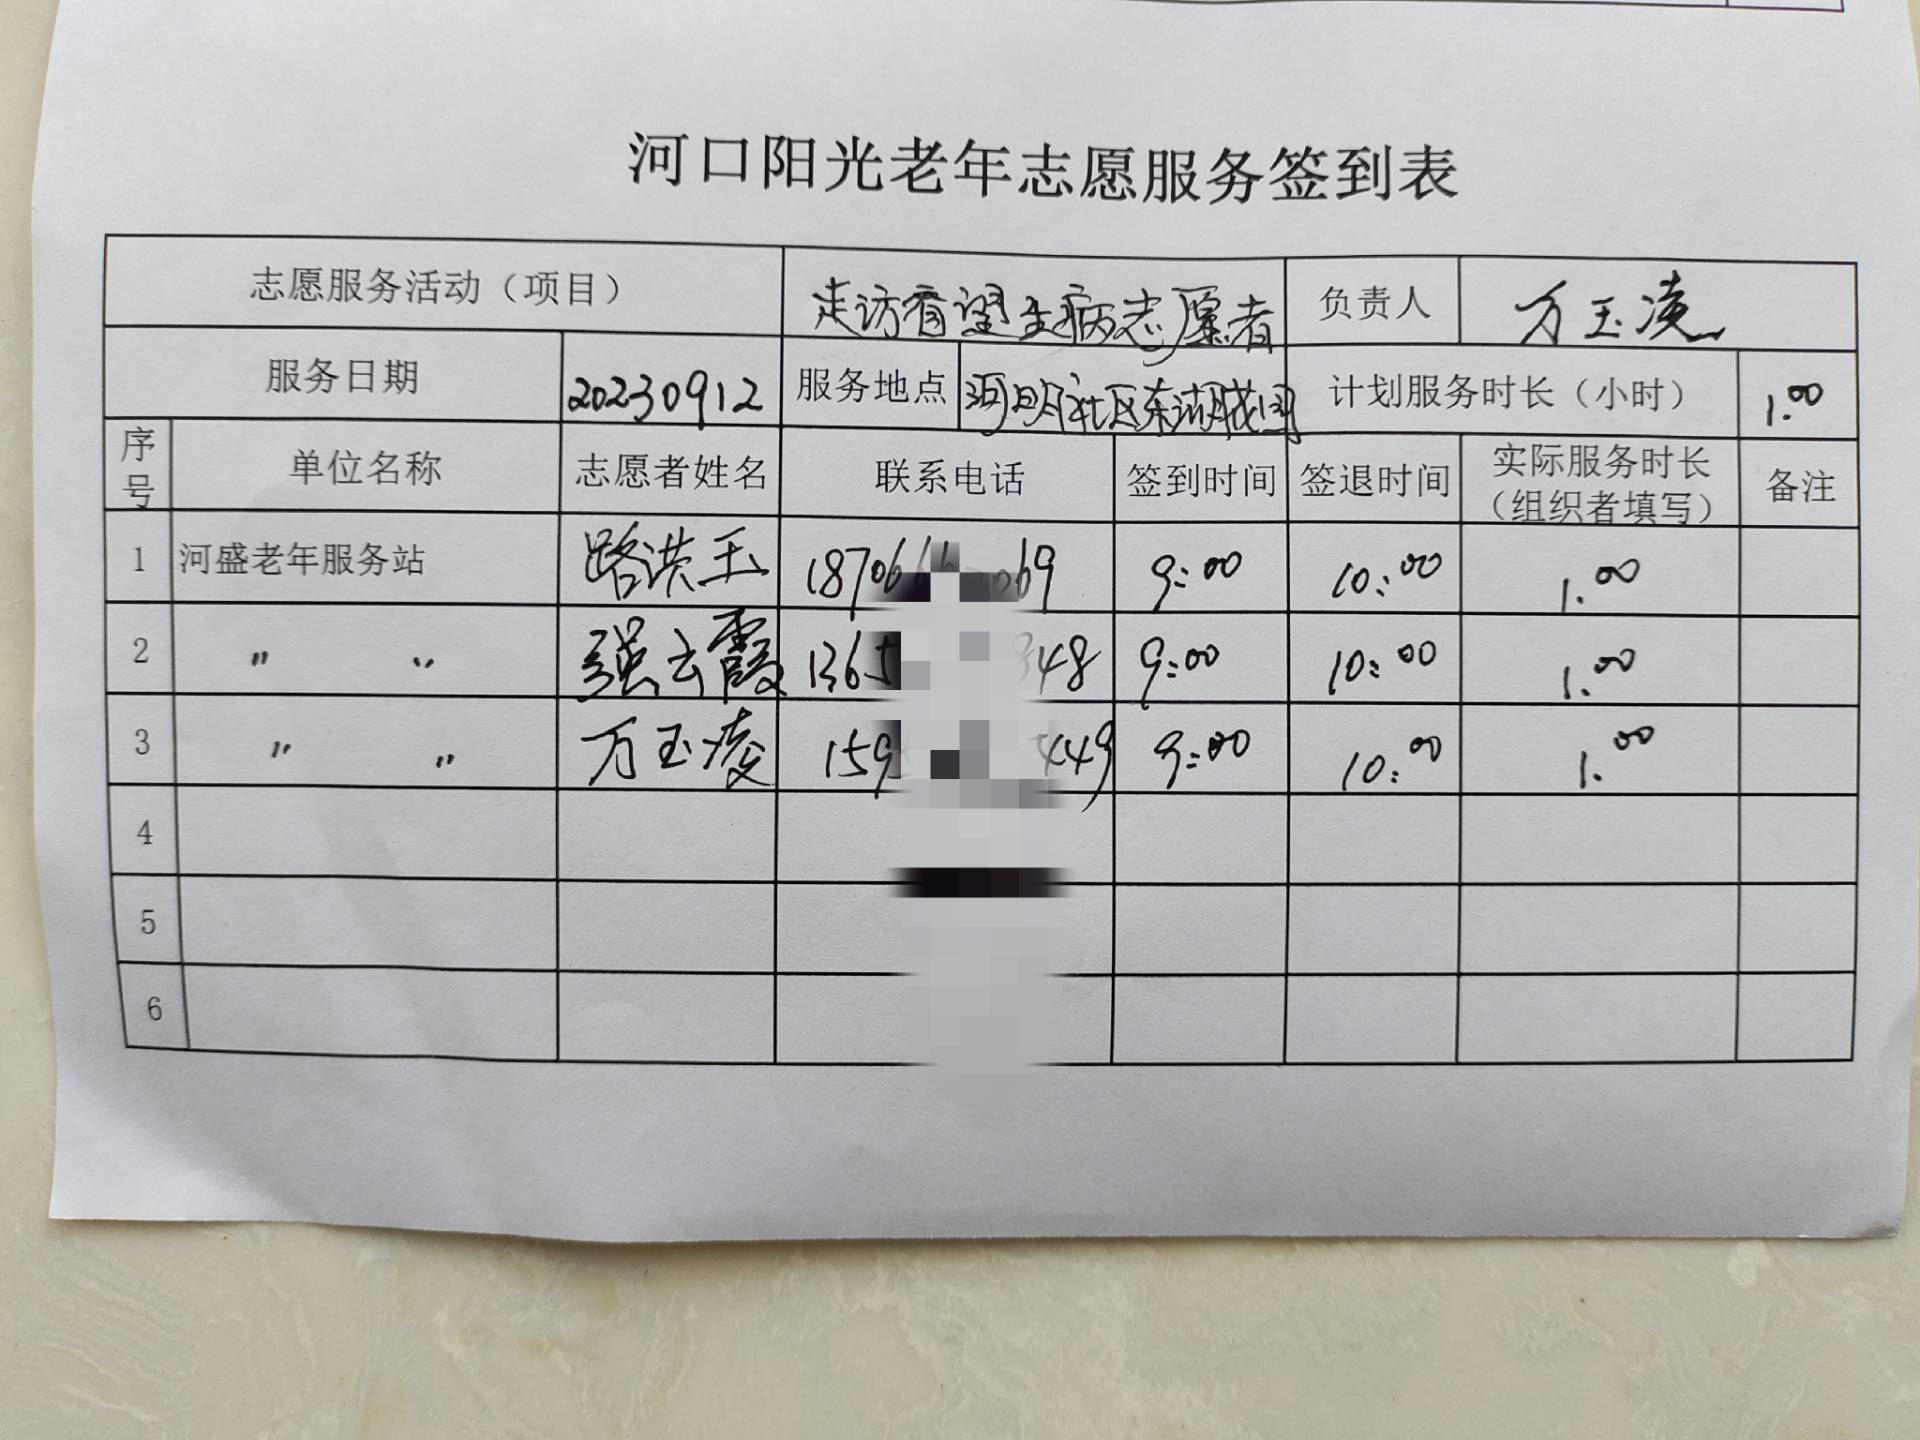 河口阳光老年志愿服务签到表
志愿服务活动（项目） 走访看望生病志愿者 负责人 万玉凌
服务日期 20230912 服务地点 河明社区东湖 计划服务时长（小时） 1.00
序号 单位名称 志愿者姓名 联系电话 签到时间 签退时间 实际服务时长（组织者填写） 备注
1 河盛老年服务站 路洪玉 18706 069 9:00 10:00 1.00
2 〃 〃 强云霞 1365 848 9:00 10:00 1.00
3 〃 〃 万玉凌 159 449 9:00 10:00 1.00
4
5
6